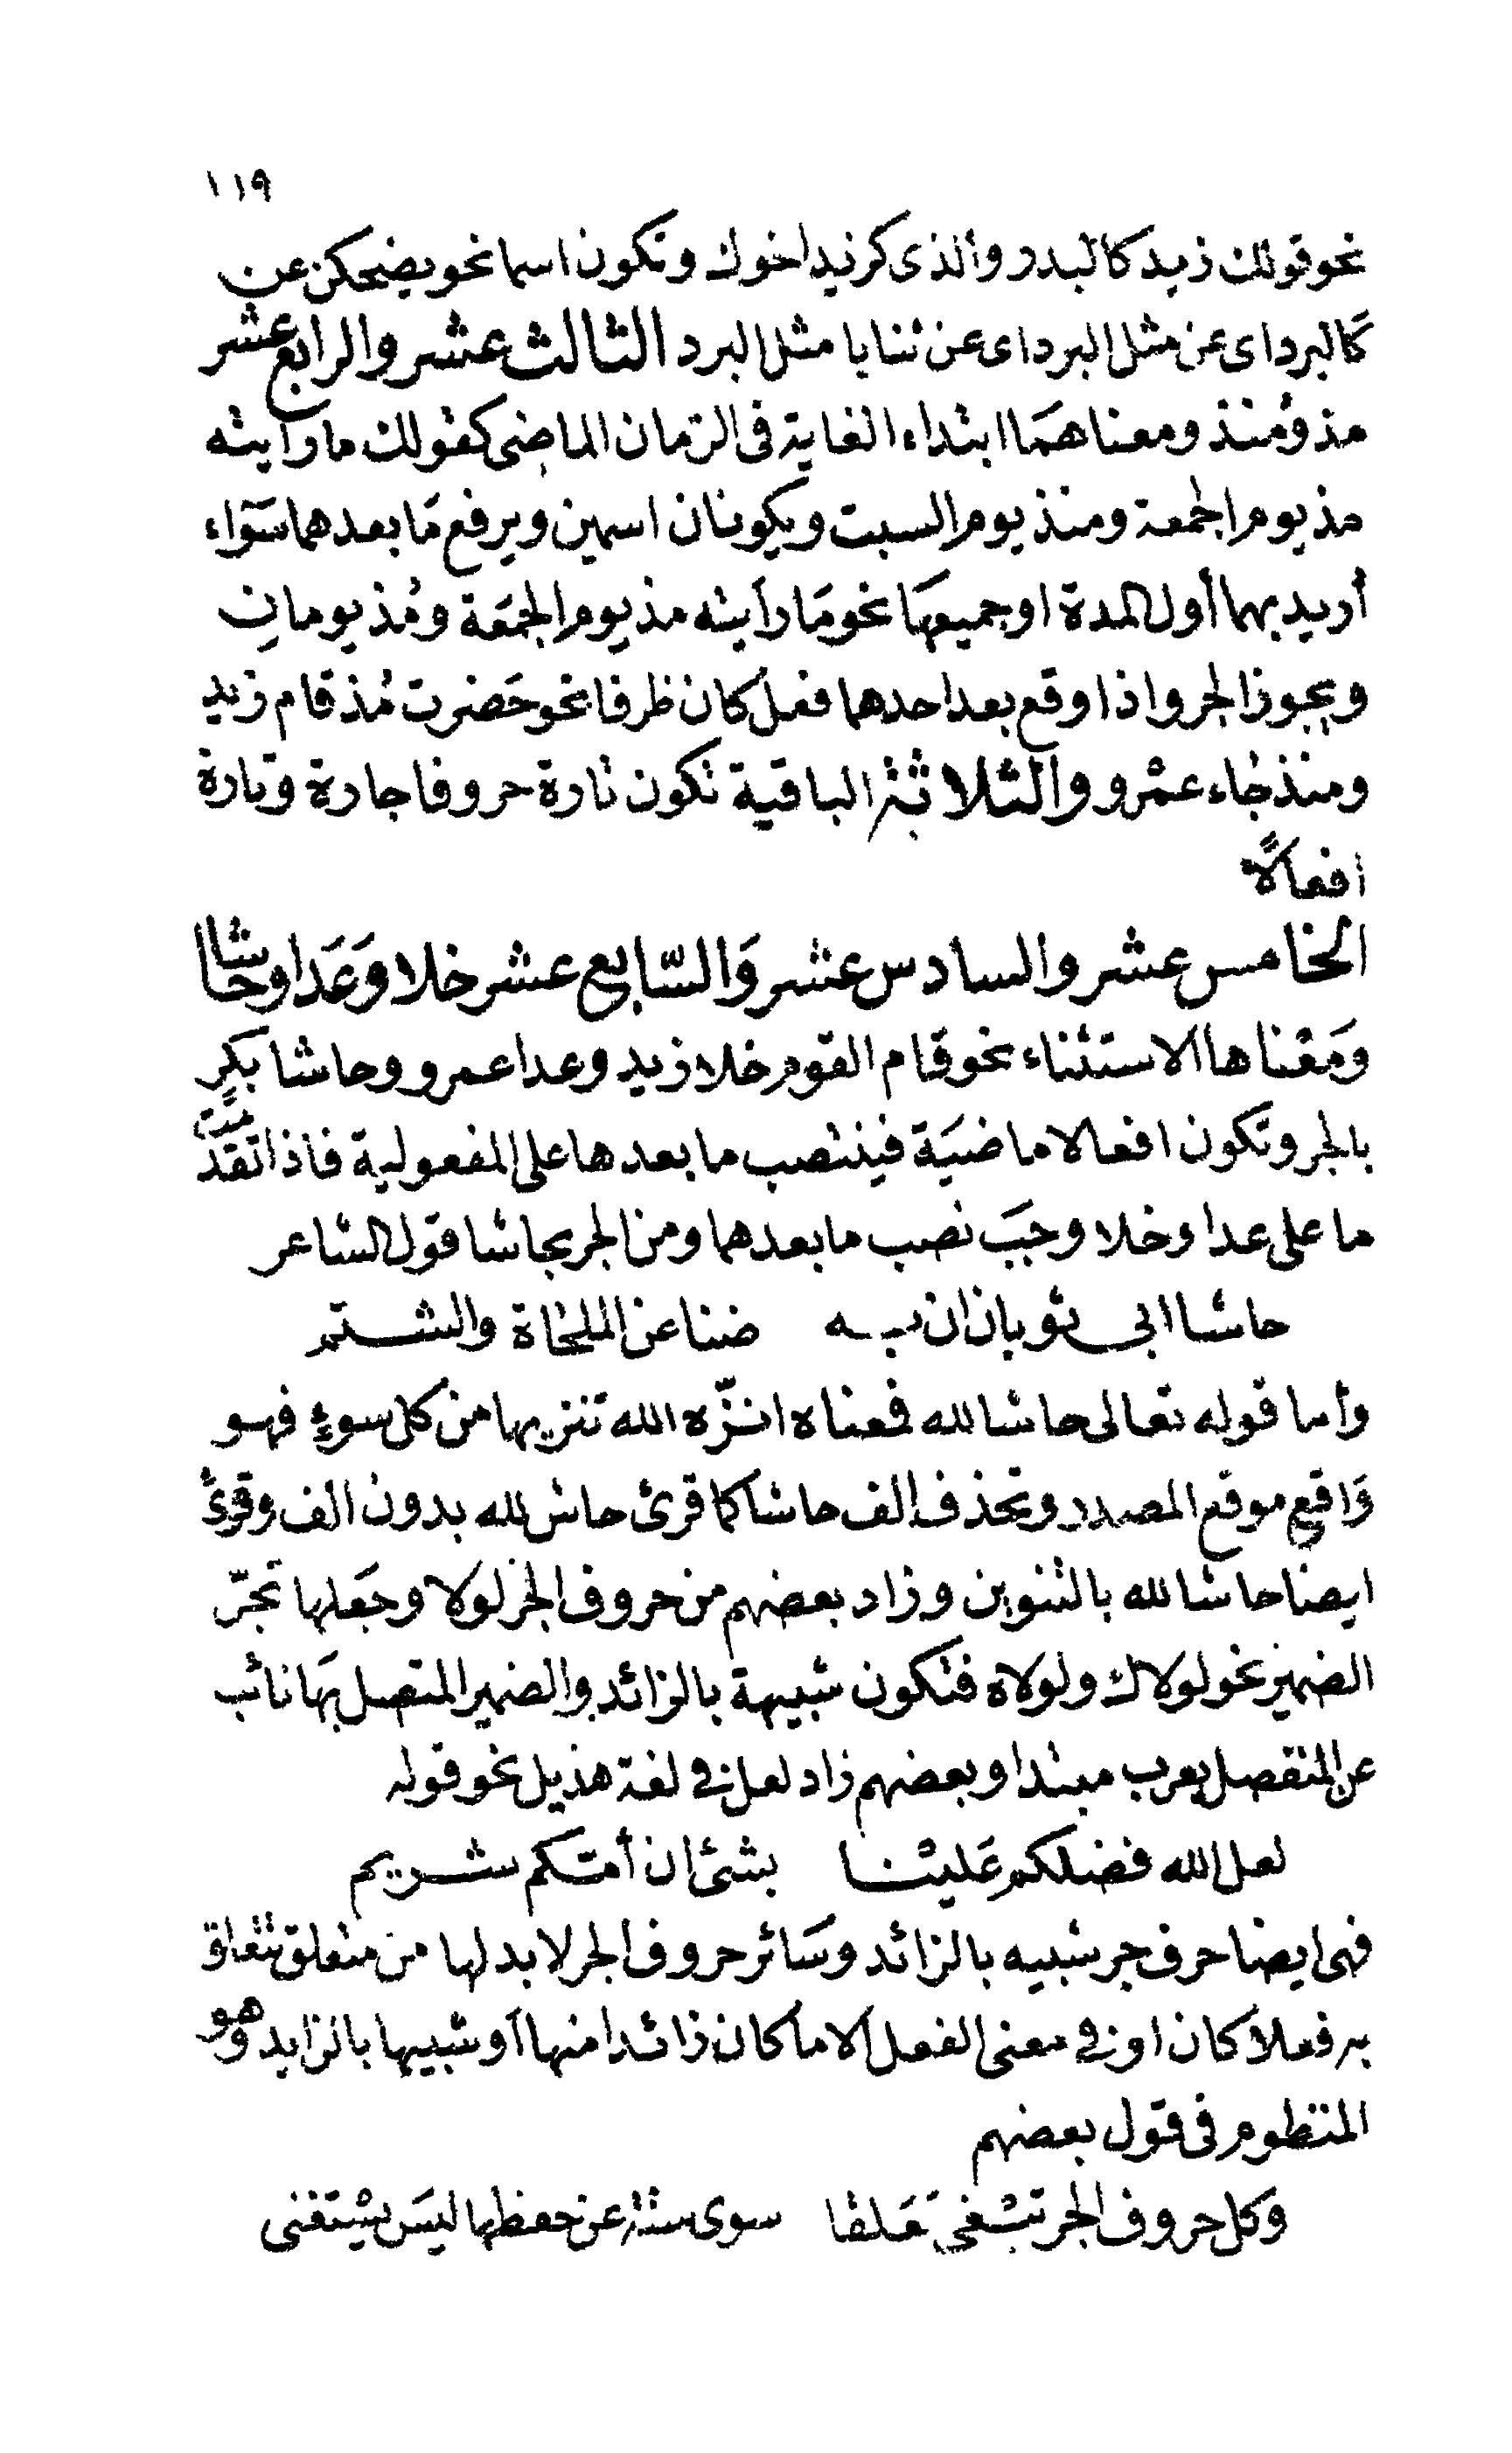 ١١٩
نحو قولك زيد كالبدر والذى كزيد اخوك وتكون اسما نحو يضحكن عن
كَالبرد اى عن مثل البرد اى عن ثنايا مثل البرد الثالث عشر والرابع عشر
مذ ومُنذ ومعناهمَا ابتداء الغاية فى الزمان الماضى كقولك ما رايته
مذ يوم الجمعة ومنذ يوم السبت ويكونان اسمين ويرفع مَا بعدهما سَوَاء
أريد بهما أول المدة او جميعهَا نحو مَا رأيته مذ يوم الجمَعة ومُذ يومانِ
ويجوز الجر واذا وقع بعد احدهما فعل كان ظرفا نحو حَضرت مُذ قام زيد
ومنذ جَاء عمْرو والثلاثة الباقية تكون تارة حروفا جارة وتارة
افعالًا
الخامس عشر والسادس عشر وَالسّابع عشر خلا وَعَدا وحَاشا
وَمعْناها الاستثناء نحو قَام القوم خلا زيد وعدا عمرو وحاشا بكرٍ
بالجر وتكون افعالا ماضيَة فينتصب ما بعدها على المفعولية فاذا تقدّمت
ما على عدا وخلا وجَبَ نصب ما بعدهما ومن الجر بحاشا قول الشاعر
حاشا ابى ثوبان ان به ضنا عن الملحَاة والشتم
وأما قوله تعالى حاشا لله فمعناه انزّه الله تنزيها من كل سوءٍ فهو
وَاقع موقع المصدر وتحذف الف حاشا كما قرئ حاش لله بدون الف وقرئَ
ايضا حاشا لله بالتنوين وزاد بعضهم من حروف الجر لولا وجَعلها تجرّ
الضمير نحو لولاك ولولاه فتكون شبيهة بالزائد والضمير المتصل بهَا نائب
عن المنفصل يعرب مبتدا وبعضهم زاد لعل فى لغة هذيل نحو قوله
لعل الله فضلكم عَليْنا بشئ ان أمّكم شريم
فهى ايضا حرف جر شبيه بالزائد وسَائر حروف الجر لا بد لها من متعلق تتعلق
به فعلا كان او فى معنى الفعل الا ما كان زائدا منها أو شبيها بالزايد وهو
المنظوم فى قول بعضهم
وكل حروف الجر تبْغى تَعَلقا سوى ستة عن حفظها ليسَ يسْتَغنى